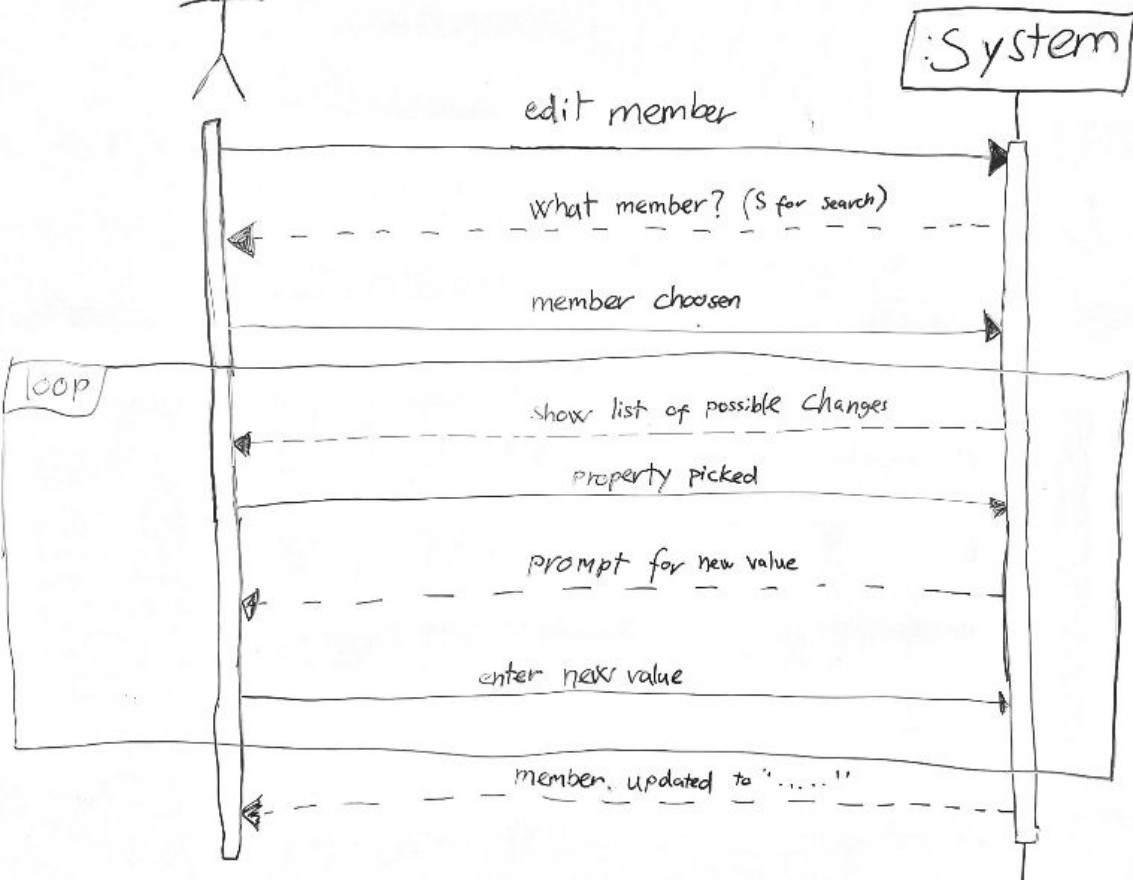 :System
edit member
What member? (S for search)
member choosen
loop
show list of possible changes
property picked
prompt for new value
enter new value
member. updated to "....."